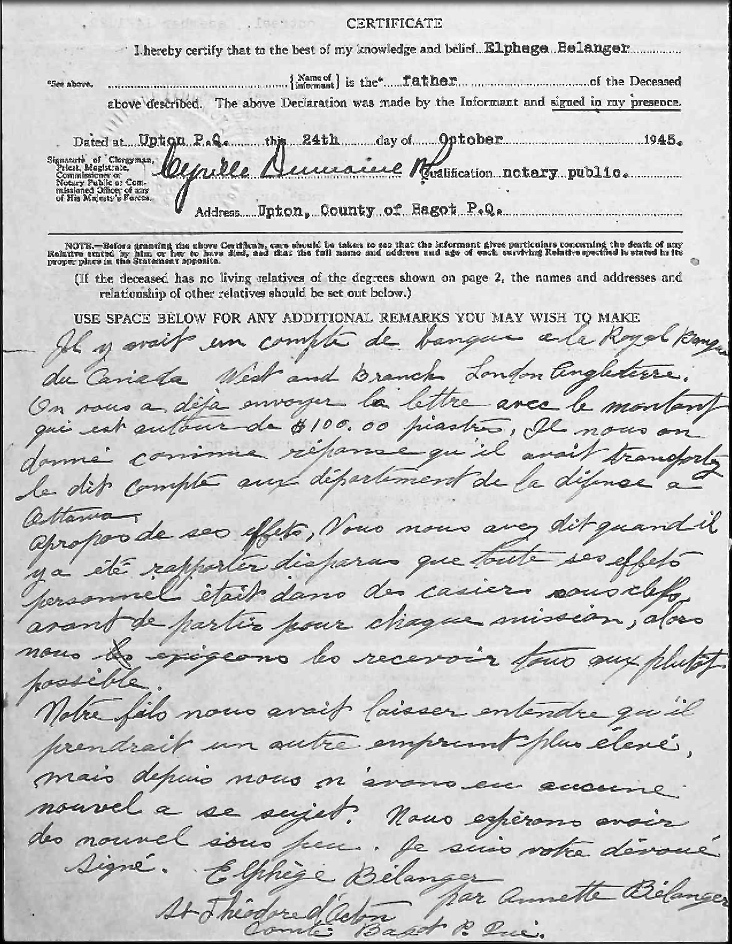 CERTIFICATE
I hereby certify that to the best of my knowledge and belief Elphege Belanger
*See above. {Name of informant} is the* father of the Deceased
above described. The above Declaration was made by the Informant and signed in my presence.
Dated at Upton P.Q. this 24th day of October 1945.
Signature of Clergyman, Priest, Magistrate, Commissioner or Notary Public or Commissioned Officer of any of His Majesty's Forces. Cyrille Dumaine NP Qualification notary public.
Address Upton, County of Bagot P.Q.
NOTE.—Before granting the above Certificate, care should be taken to see that the informant gives particulars concerning the death of any
Relative stated by him or her to have died, and that the full name and address and age of each surviving Relative specified is stated in its
proper place in the Statement opposite.
(If the deceased has no living relatives of the degrees shown on page 2, the names and addresses and
relationship of other relatives should be set out below.)
USE SPACE BELOW FOR ANY ADDITIONAL REMARKS YOU MAY WISH TO MAKE
Il y avait un compte de banque a la Royal Banque
du Canada West and Branch London Angleterre.
On vous a déjà envoyer la lettre avec le montant
qui est autour de $100.00 piastres, Il nous on
donné comme réponse qu'il avait transportez
le dit compte aux département de la défense a
Ottawa.
Apropos de ses effets, Vous nous avez dit quand il
y a été rapporter disparus que toute ses effets
personnel était dans des casiers sous clefs,
avant de partir pour chaque mission, alors
nous exigeons les recevoir tous aux plutôt
possible.
Notre fils nous avait laisser entendre qu'il
prendrait un autre emprunt plus élevé,
mais depuis nous n'avons eu aucune
nouvel a se sujet. Nous espérons avoir
des nouvel sous peu. Je suis votre dévoué
Signé. Elphège Bélanger
par Annette Bélanger
St-Théodore d'Acton
Comté Bagot P. Qué.